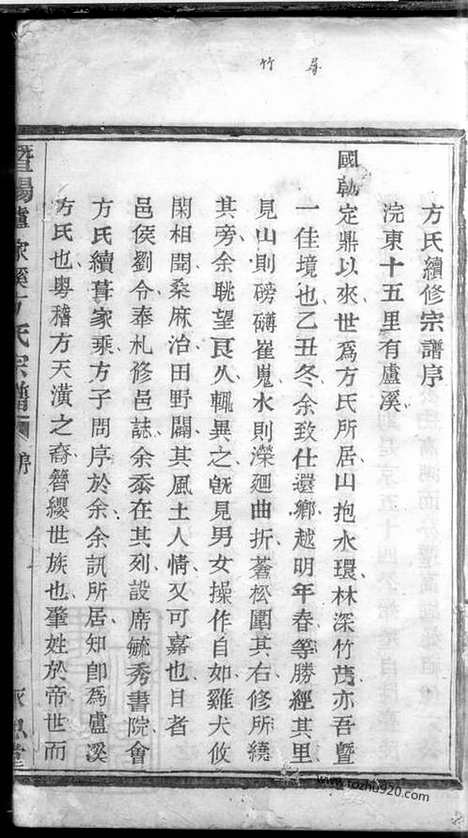 尋竹
方氏續修宗譜序
浣東十五里有盧溪
國朝定鼎以來世為方氏所居山抱水環林深竹茂亦吾暨
一佳境也乙丑冬余致仕還鄉越明年春等勝經其里
見山則磅礴崔嵬水則瀠廻曲折蒼松圍其右修竹繞
其旁余眺望良久輒異之旣見男女操作自如雞犬攸
閑相聞桑麻治田野闢其風土人情又可嘉也日者
邑侯劉令奉札修邑誌余忝在其列設席毓秀書院會
方氏續葺家乘方子問序於余余訊所居知卽為盧溪
方氏也粤稽方天潢之裔簪纓世族也肇姓於帝世而
暨陽盧家溪方氏宗譜
序
www.tozhu920.com